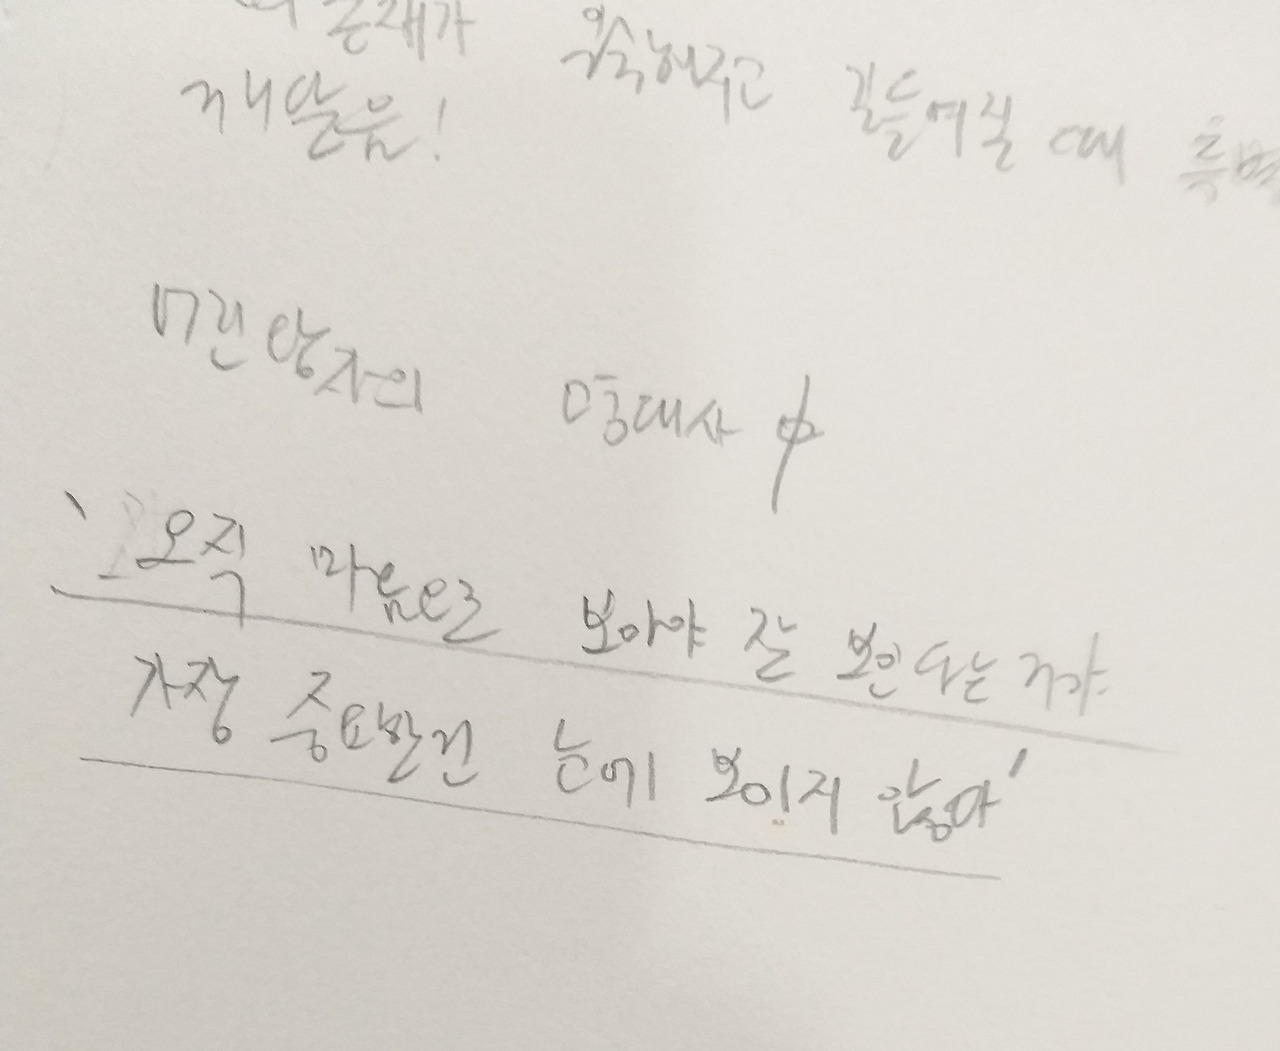 존재가 익숙해주고 길들여질 때 특별
깨달음!
어린왕자의 명대사 中
'오직 마음으로 보아야 잘 보인다는 거야.
가장 중요한건 눈에 보이지 않아'